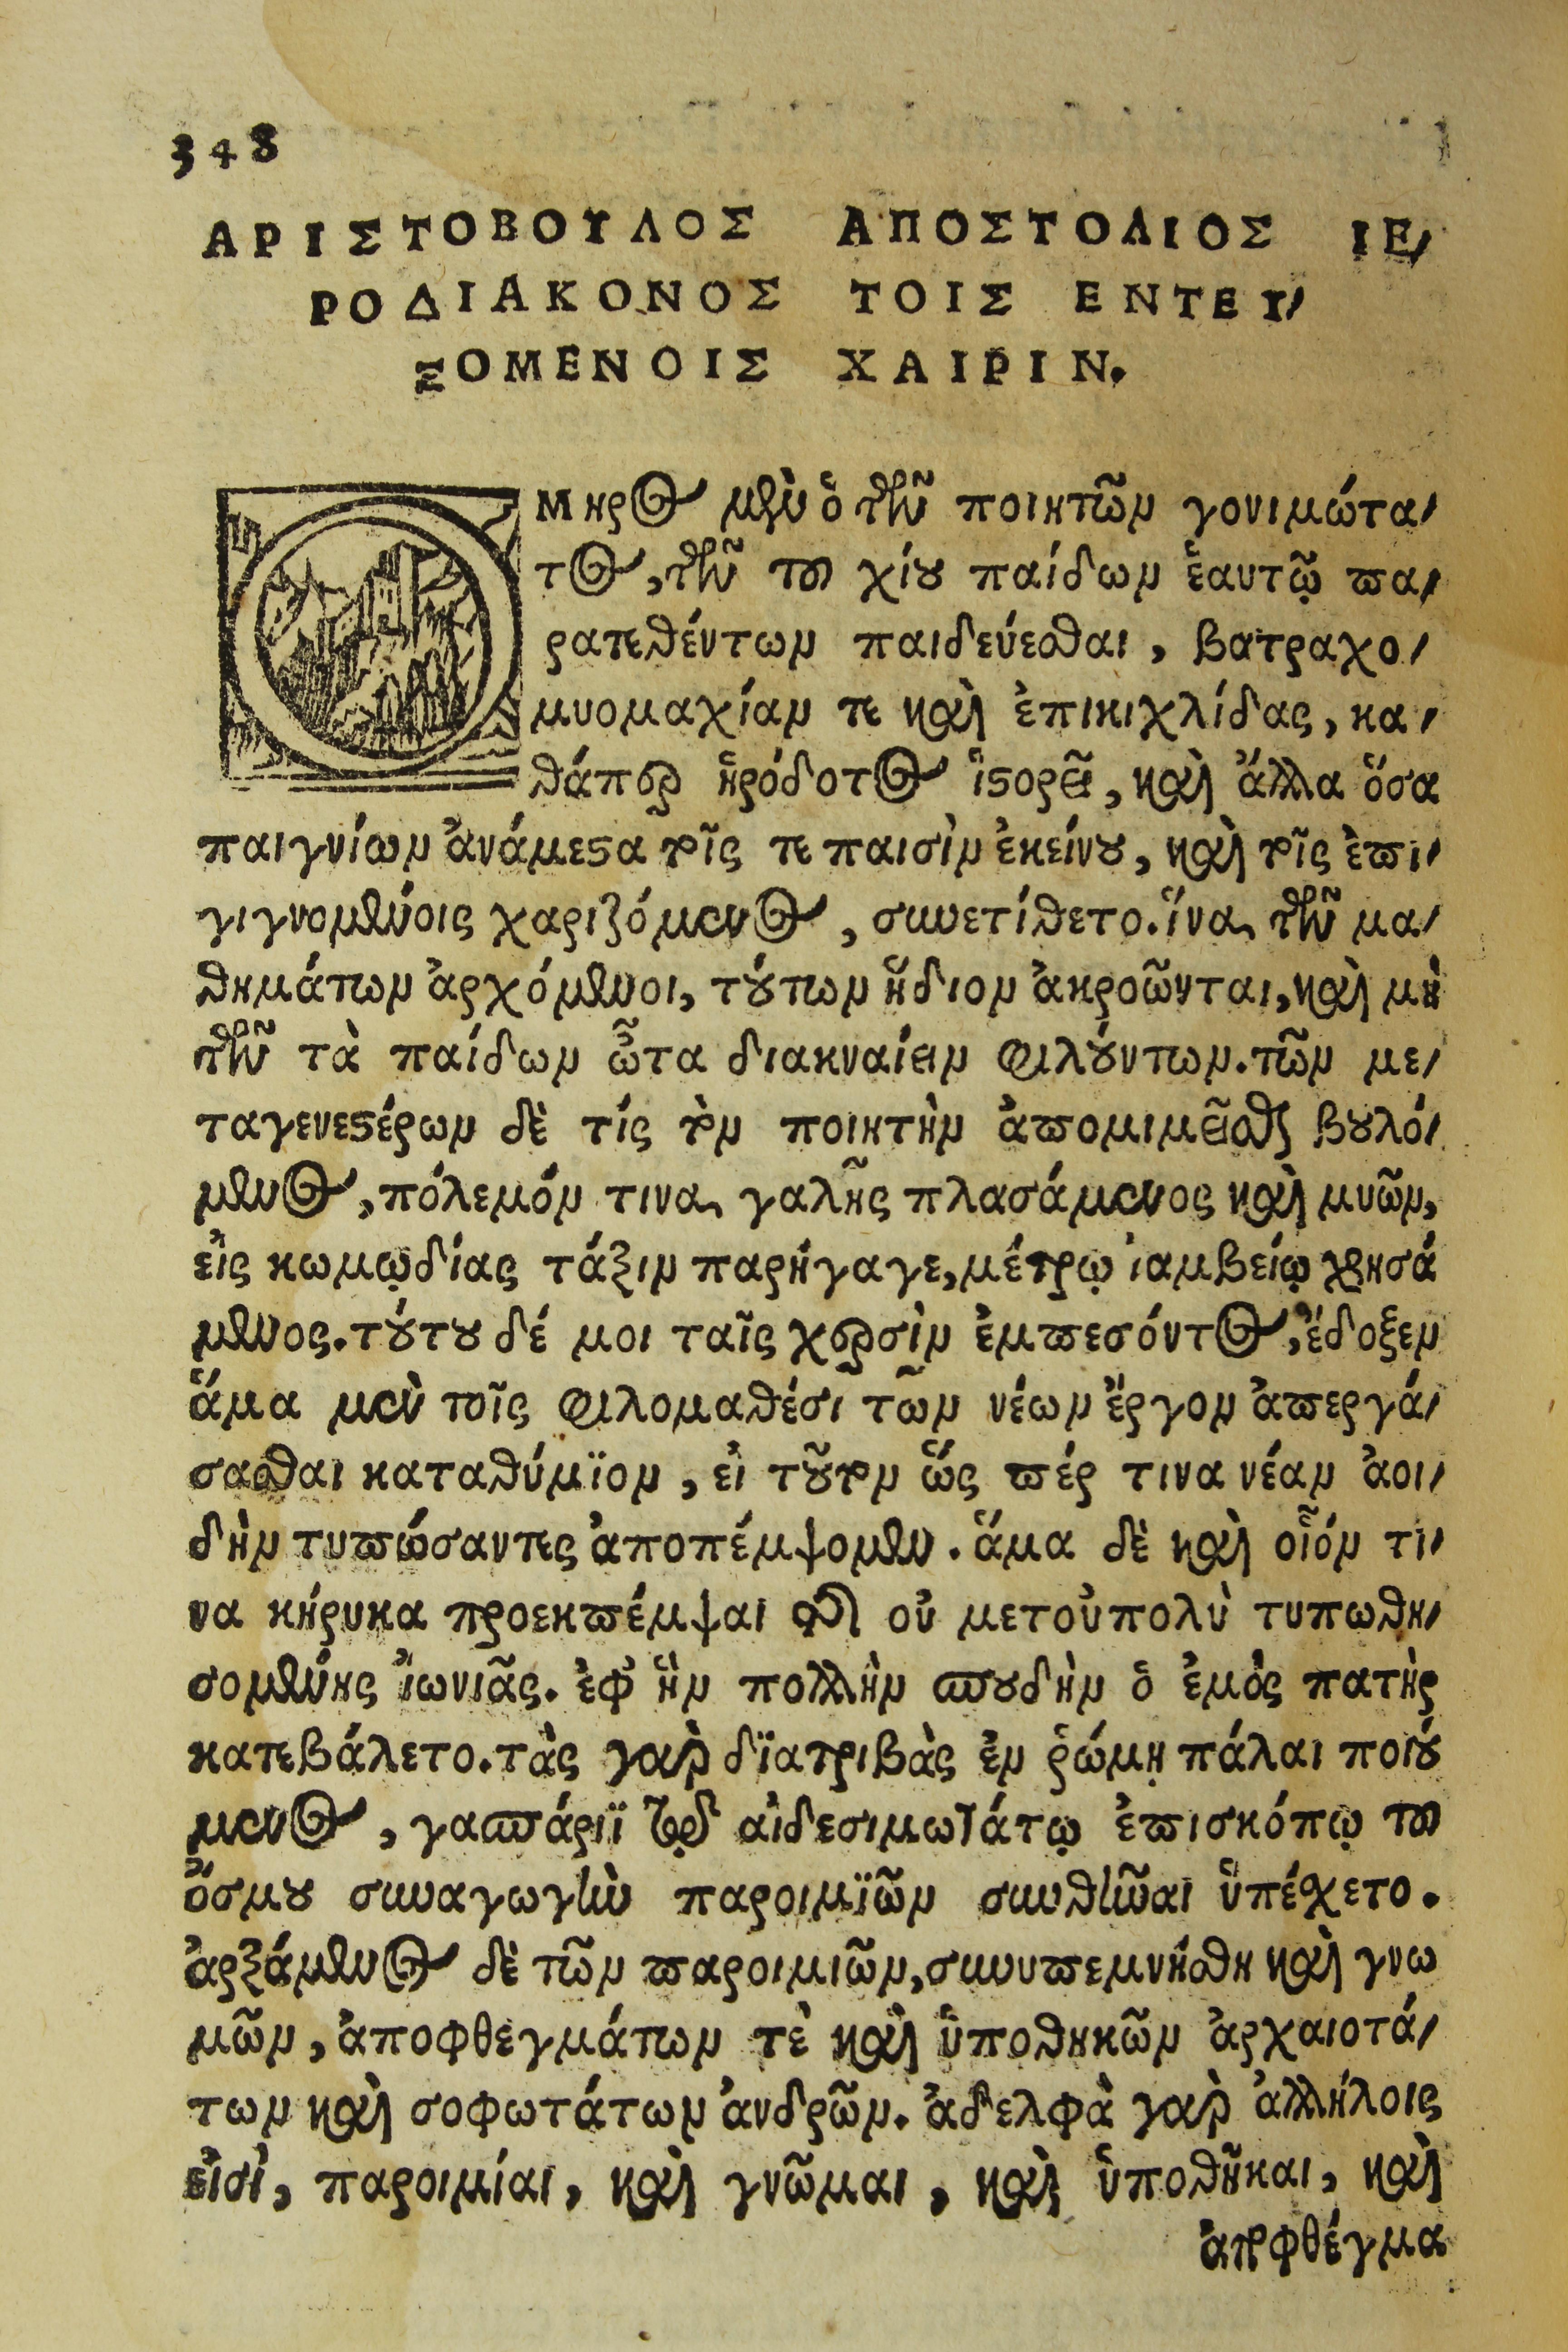 348
ΑΡΙΣΤΟΒΟΥΛΟΣ ΑΠΟΣΤΟΛΙΟΣ ΙΕ/
ΡΟΔΙΑΚΟΝΟΣ ΤΟΙΣ ΕΝΤΕΥ/
ΞΟΜΕΝΟΙΣ ΧΑΙΡΙΝ.
ΟΜηρος μὲν ὁ τῶν ποιητῶν γονιμώτα/
τος, τῶν τοῦ χίου παίδων ἑαυτῷ πα/
ρατεθέντων παιδεύεσθαι, βατραχο/
μυομαχίαν τε καὶ ἐπικιχλίδας, κα/
θάπερ ἡρόδοτος ἱστορεῖ, καὶ ἄλλα ὅσα
παιγνίων ἀνάμεστα τοῖς τε παισὶν ἐκείνου, καὶ τοῖς ἐπι/
γιγνομένοις χαριζόμενος, συνετίθετο. ἵνα τῶν μα/
θημάτων ἀρχόμενοι, τούτων ἥδιον ἀκροῶνται, καὶ μὴ
τῶν τὰ παίδων ὦτα διακναίειν φιλούντων. τῶν με/
ταγενεστέρων δὲ τίς τὸν ποιητὴν ἀπομιμεῖσθαι βουλό/
μενος, πόλεμόν τινα γαλῆς πλασάμενος καὶ μυῶν,
εἰς κωμῳδίας τάξιν παρήγαγε, μέτρῳ ἰαμβείῳ χρησά
μενος. τούτου δέ μοι ταῖς χερσὶν ἐμπεσόντος, ἔδοξεν
ἅμα μὲν τοῖς φιλομαθέσι τῶν νέων ἔργον ἀπεργά/
σασθαι καταθύμϊον, εἰ τοῦτον ὥς πέρ τινα νέαν ἀοι/
δὴν τυπώσαντες ἀποπέμψομεν. ἅμα δὲ καὶ οἷόν τι/
να κήρυκα προεκπέμψαι τῆς οὐ μετοὐπολὺ τυπωθη/
σομένης ἰωνιᾶς. ἐφ' ἣν πολλὴν σπουδὴν ὁ ἐμὸς πατὴρ
κατεβάλετο. τὰς γὰρ δϊατριβὰς ἐν ῥώμῃ πάλαι ποιού
μενος, γασπάριϊ τῷ αἰδεσιμωτάτῳ ἐπισκόπῳ τοῦ
ὄσμου συναγωγὴν παροιμϊῶν συνθεῖναι ὑπέσχετο.
ἀρξάμενος δὲ τῶν παροιμιῶν, συνυπεμνήσθη καὶ γνω
μῶν, ἀποφθεγμάτων τὲ καὶ ὑποθηκῶν ἀρχαιοτά/
των καὶ σοφωτάτων ἀνδρῶν. ἀδελφὰ γὰρ ἀλλήλοις
εἰσὶ, παροιμίαι, καὶ γνῶμαι, καὶ ὑποθῆκαι, καὶ
ἀποφθέγμα